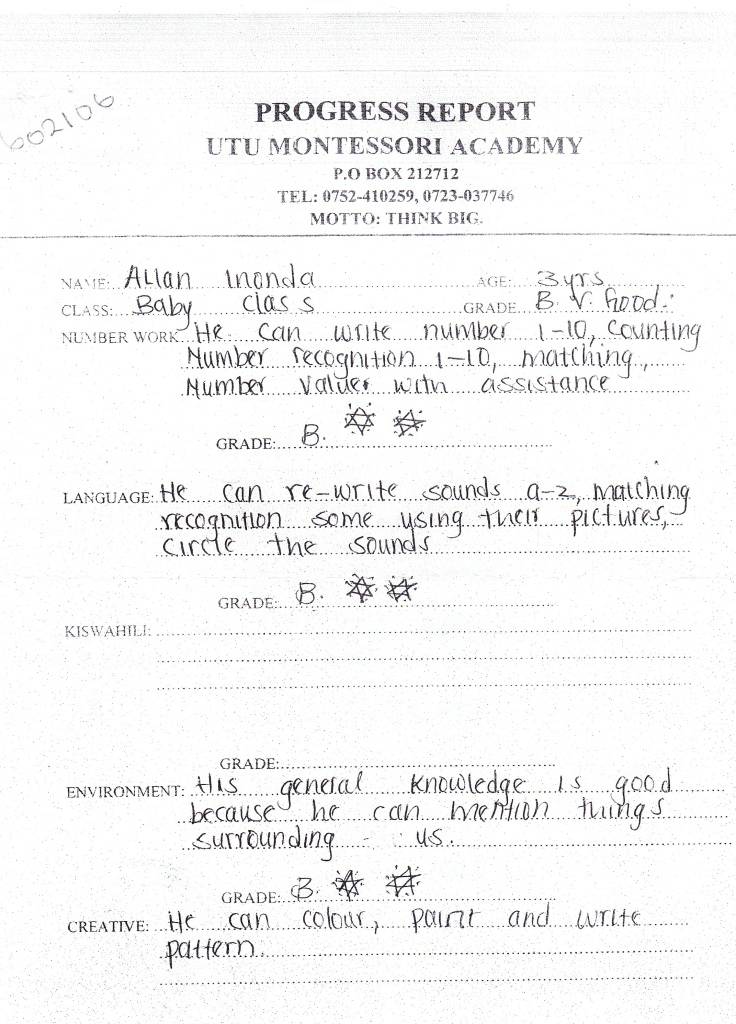 602106
PROGRESS REPORT
UTU MONTESSORI ACADEMY
P.O BOX 212712
TEL: 0752-410259, 0723-037746
MOTTO: THINK BIG.
NAME: Allan Inonda AGE: 3 yrs
CLASS: Baby class GRADE B V. Good.
NUMBER WORK He can write number 1-10, counting
Number recognition 1-10, matching,
Number valuer with assistance
GRADE: B.
LANGUAGE: He can re-write sounds a-z, matching
recognition some using their pictures,
circle the sounds
GRADE: B.
KISWAHILI:
GRADE:
ENVIRONMENT: His general knowledge is good
because he can mention things
surrounding us.
GRADE: B.
CREATIVE: He can colour, paint and write
pattern.